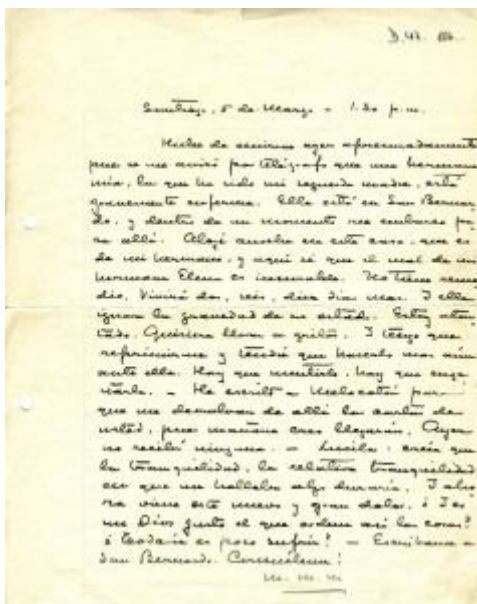 D. 43.
Santiago, 5 de Marzo - 1.30 p.m.
Hube de venirme ayer apresuradamente
pues se me avisó por telégrafo que una hermana
mía, la que ha sido mi segunda madre, está
gravemente enferma. Ella está en San Bernar-
do, y dentro de un momento me embarco pa-
ra allá. Alojé anoche en esta casa, que es
de mi hermano, y aquí sé que el mal de mi
hermana Elena es incurable. No tiene reme-
dio. Vivirá dos, seis, diez días más. I ella
ignora la gravedad de su estado. Estoy aton-
tado. Quisiera llorar a gritos. I tengo que
reprimirme y tendré que hacerlo más aún
ante ella. Hay que mentirle, hay que enga-
ñarla. - He escrito a Melocotón para
que me devuelvan de allá la carta de
usted, pues mañana creo llegarán. Ayer
no recibí ninguna. - Lucila: creía que
la tranquilidad, la relativa tranquilidad
en que me hallaba algo duraría. I aho-
ra viene este nuevo y gran dolor. ¿I es
un Dios justo el que ordena así las cosas?
¿Todavía es poco sufrir? - Escríbame a
San Bernardo. Consuéleme!
M. M. M